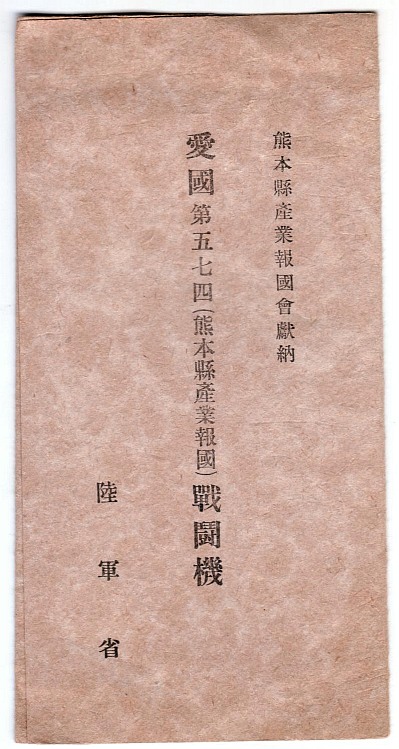 熊本縣産業報國會獻納
愛國第五七四(熊本縣産業報國)戰鬪機
陸軍省